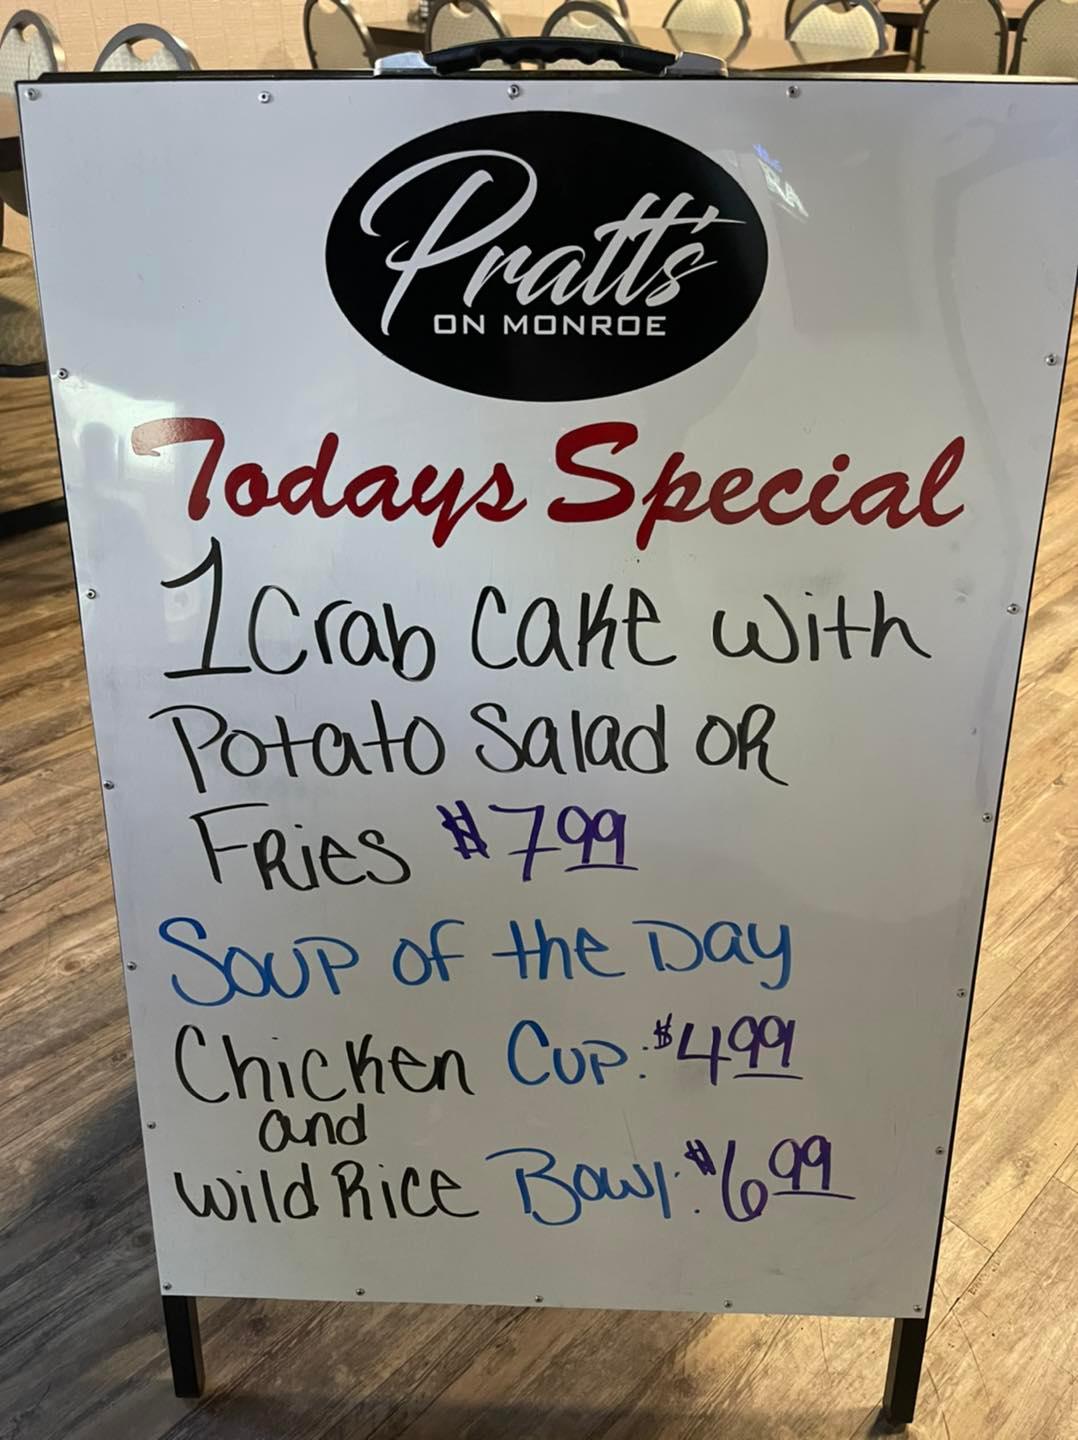 Pratt's
ON MONROE
Todays Special
1 Crab Cake with
Potato Salad OR
Fries $7.99
Soup of the Day
Chicken Cup: $4.99
and
Wild Rice Bowl: $6.99